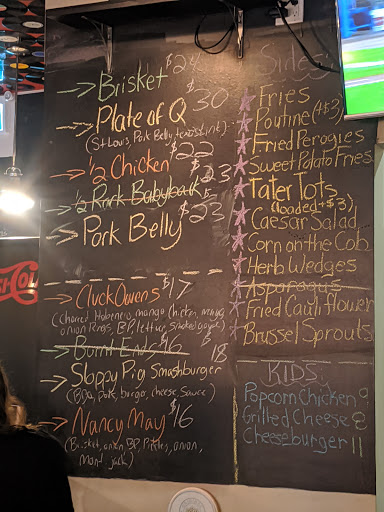 →Brisket $24
→Plate of Q $30
(St Louis, Pork Belly,
→½ Chicken $22
→½ Rack Babyback $23
→Pork Belly $23
→Cluck Owens $17
(Charred Habenero, mango, Chicken,
onion Rings, BP, lettuce, Smoked gouda)
→Burnt Ends $16
→Sloppy Pig Smashburger $18
(BBQ, pork, burger, cheese, Sauce)
→Nancy May $16
(Brisket, onion, BP, Pickles, onion,
Mont. jack)
Sides:
Fries
Poutine (+$3)
Fried Perogies
Sweet Potato Fries
Tater Tots
(loaded +$3)
Caesar Salad
Corn on the Cob
Herb Wedges
Asparagus
Fried Cauliflower
Brussel Sprouts
KIDS:
Popcorn Chicken 9
Grilled Cheese 8
Cheeseburger 11